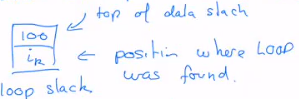 top of data slack
100
ik
← position where LOOP
was found.
loop slack